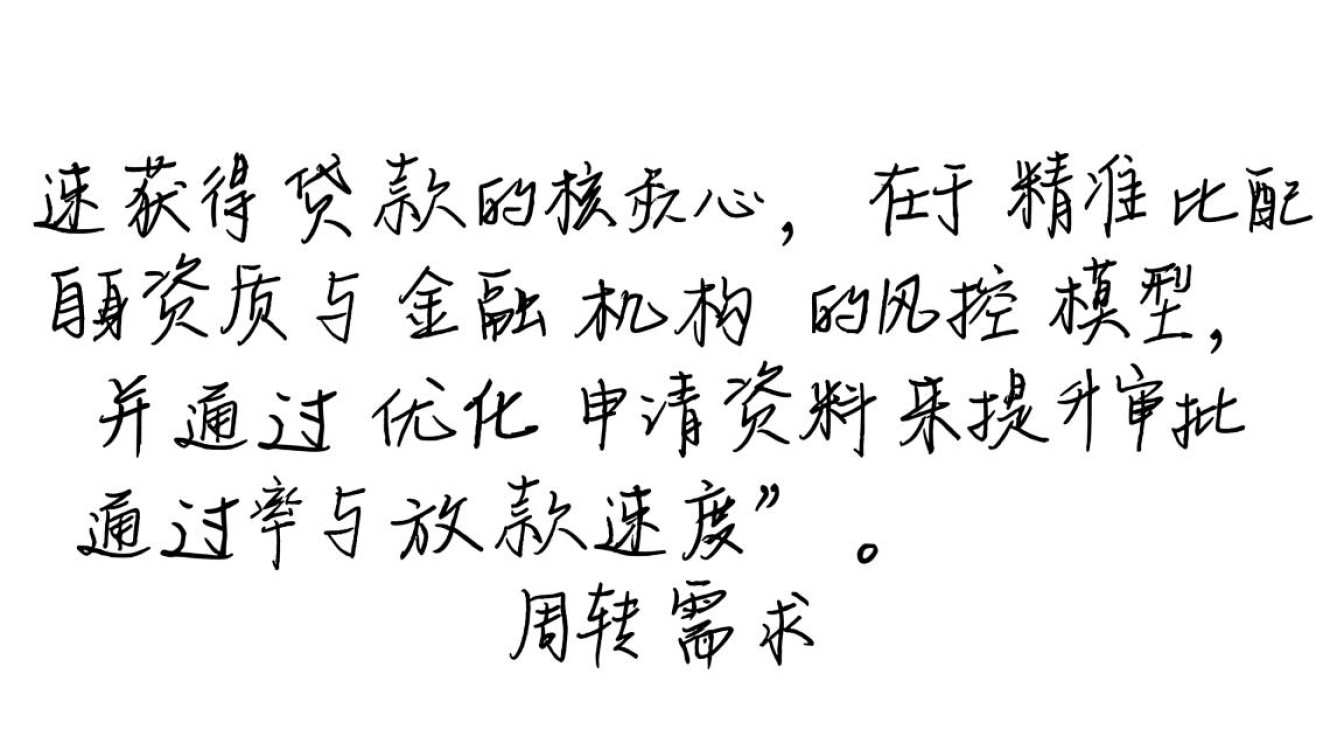 速获得贷款的核心，在于精准比配
自身资质与金融机构的风控模型，
并通过优化申请资料来提升审批
通过率与放款速度”。
周转需求